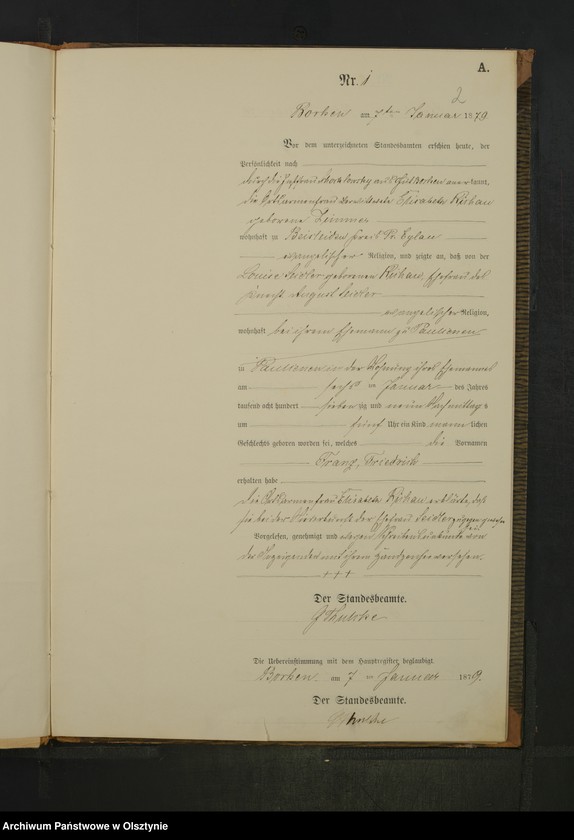 A.
Nr. 1
2
Borken am 7ten Januar 1879
Vor dem unterzeichneten Standesbeamten erschien heute, der
Persönlichkeit nach
durch die aus Gut Borken anerkannt,
die Ortsarmenfrau Elisabeth Kuhau
geborene Zimmer
wohnhaft zu Beisleiden Kreis Pr. Eylau
evangelischer Religion, und zeigte an, daß von der
Louise Seidler geborenen Kuhau, Ehefrau des
Knecht August Seidler
evangelischer Religion,
wohnhaft bei ihrem Ehemann zu Paulienen
zu Paulienen in der Wohnung ihres Ehemannes
am sechs ten Januar des Jahres
tausend acht hundert sieben zig und neun Nachmittags
um fünf Uhr ein Kind männ lichen
Geschlechts geboren worden sei, welches die Vornamen
Franz, Friedrich
erhalten habe
Die Ortsarmenfrau Elisabeth Kuhau erklärte, daß
sie bei der Niederkunft der Ehefrau Seidler zugegen gewesen sei
Vorgelesen, genehmigt und wegen Schreibensunkunde von
der Anzeigenden mit ihrem Handzeichen versehen.
+++
Der Standesbeamte.
Die Uebereinstimmung mit dem Hauptregister beglaubigt
Borken am 7 ten Januar 1879.
Der Standesbeamte.
Archiwum Państwowe w Olsztynie